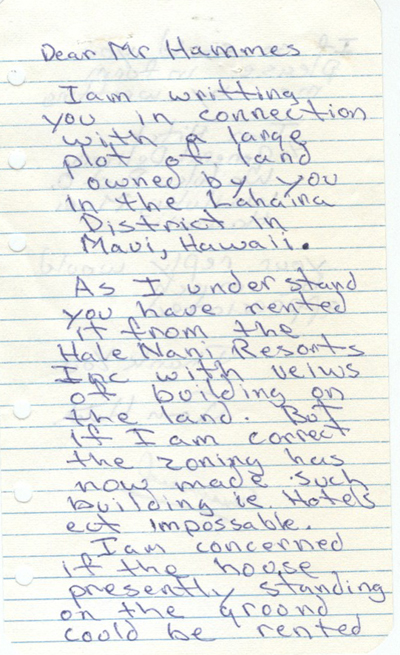 Dear Mr Hammes
I am writting
you in connection
with a large
plot of land
owned by you
in the Lahaina
District in
Maui, Hawaii.
As I understand
you have rented
it from the
Hale Nani Resorts
Inc with veiws
of building on
the land. But
if I am correct
the zoning has
now made such
building ie Hotels
ect impossable.
I am concerned
if the house
presently standing
on the ground
could be rented